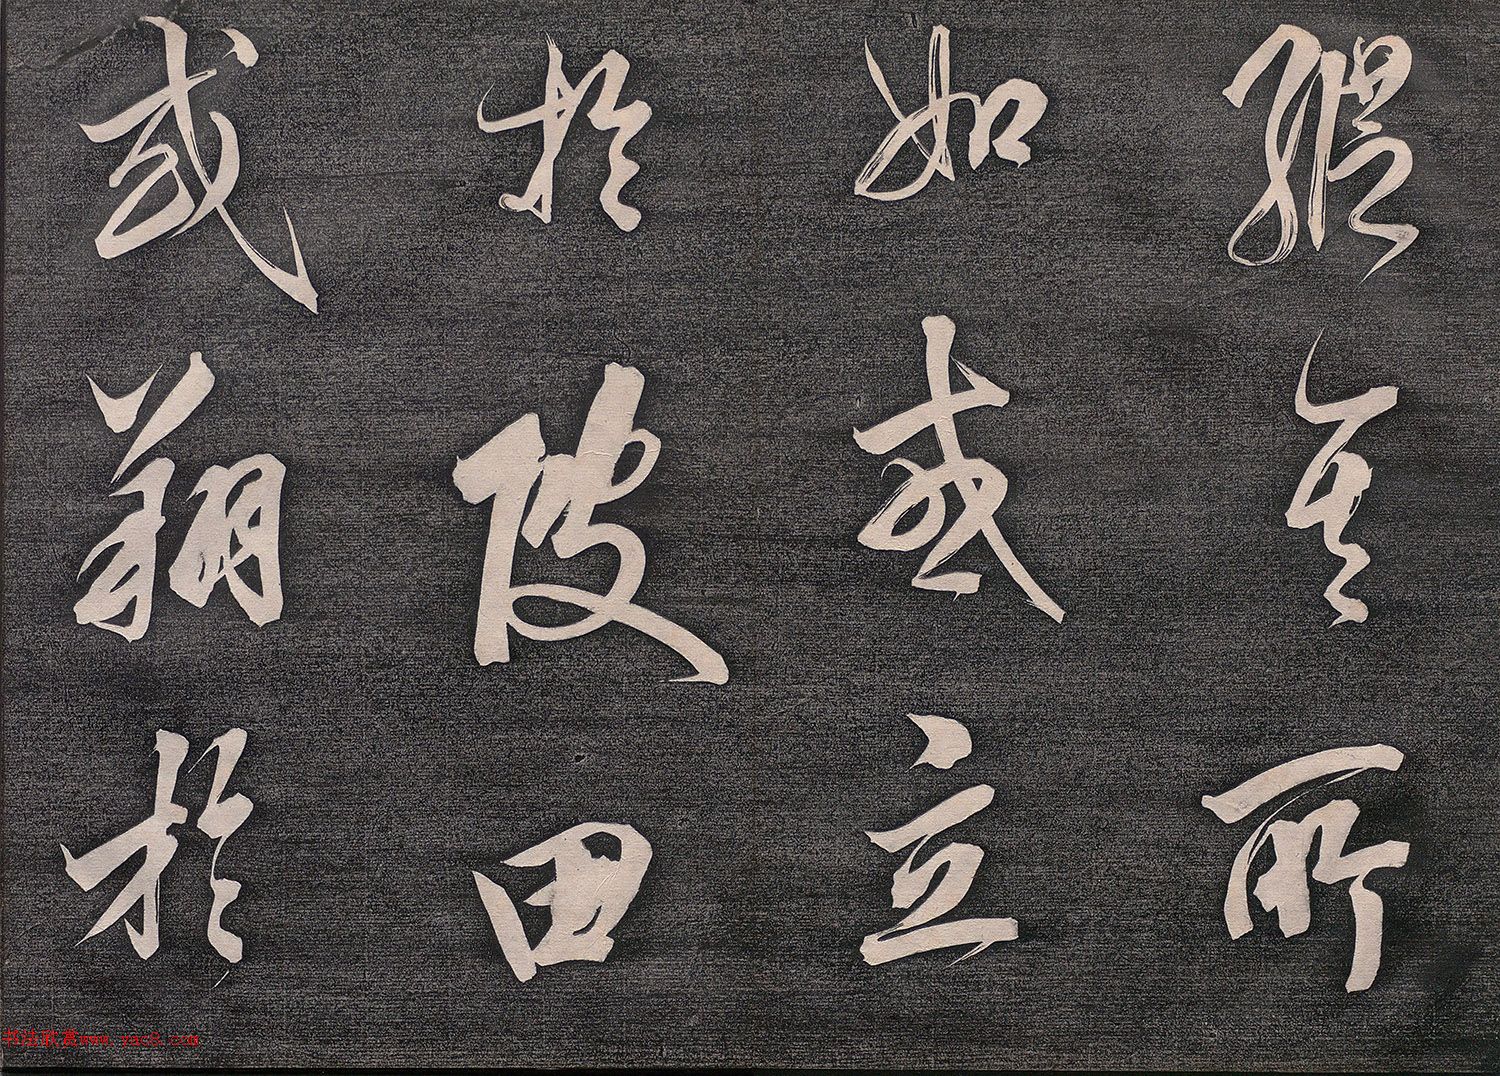 縱其所
如或立
於陂田
或翔於
书法欣赏www.yac8.com